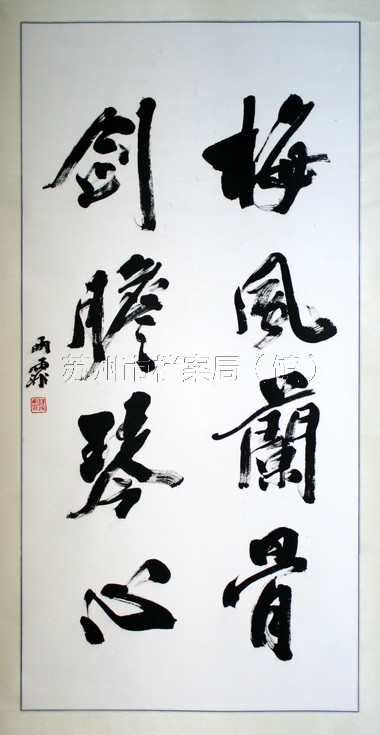 梅風蘭骨
劍膽琴心
苏州市档案局（馆）